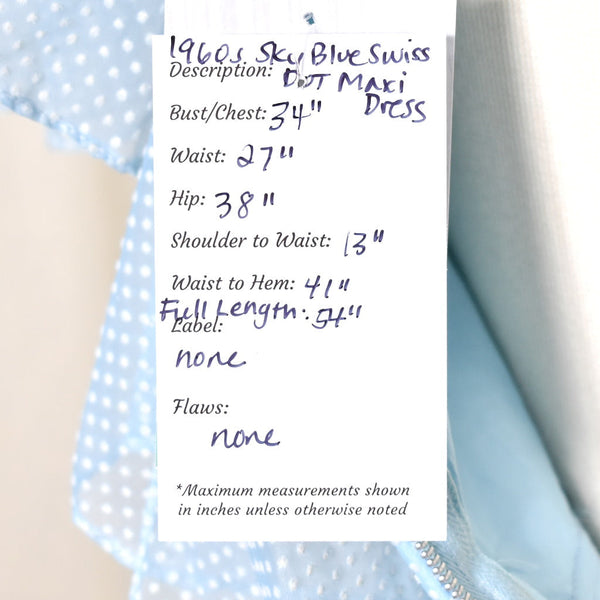 1960s Sky Blue Swiss
Description: Dot Maxi
Dress
Bust/Chest: 34"
Waist: 27"
Hip: 38"
Shoulder to Waist: 13"
Waist to Hem: 41"
Full Length: 54"
Label:
none
Flaws:
none
*Maximum measurements shown
in inches unless otherwise noted